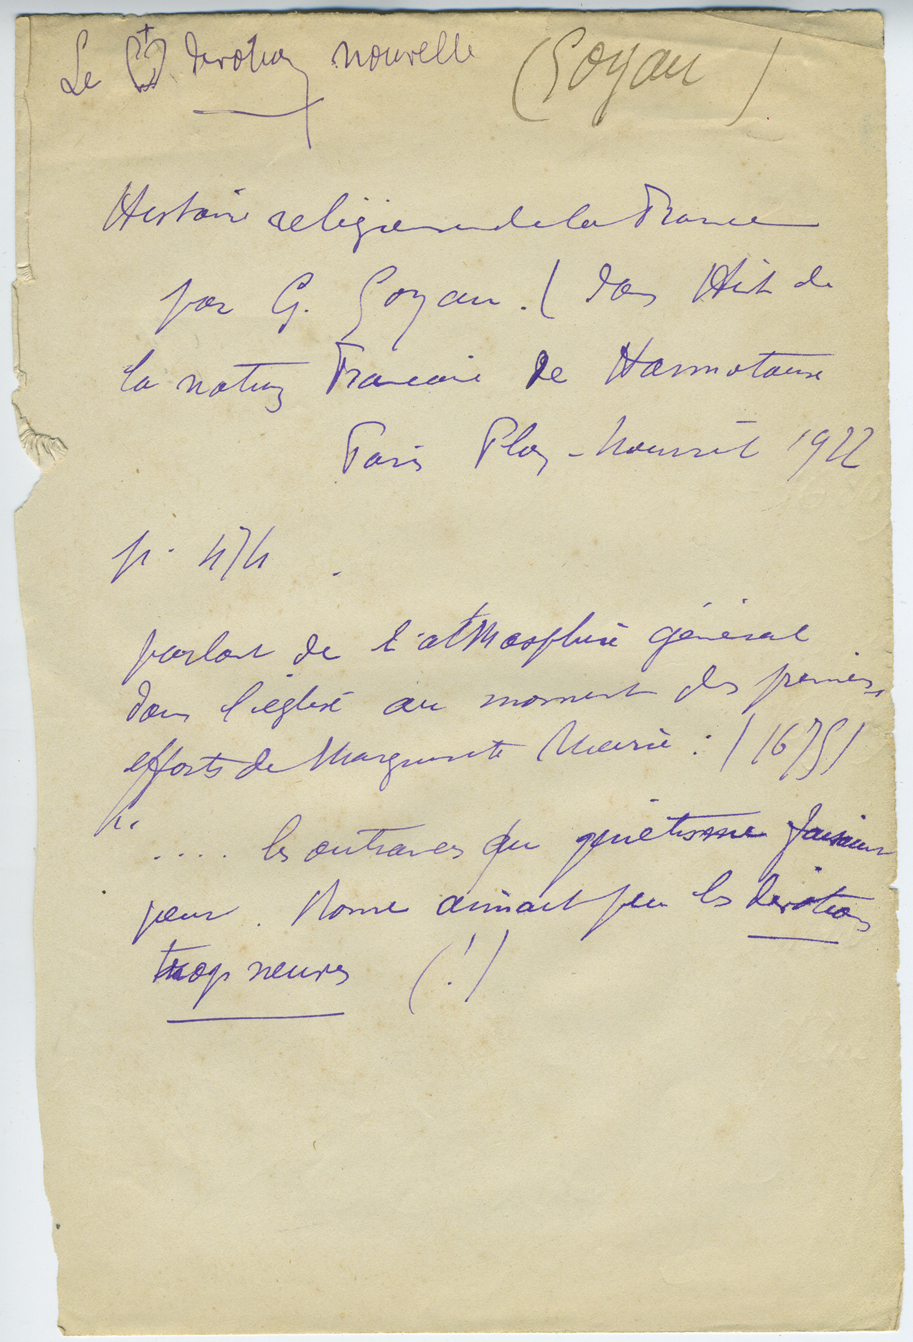 Le dévotion nouvelle (Goyau)
Histoire religieuse de la France
par G. Goyau. (dans Hist de
la nation Française de Hannotaux
Paris Plon-Nourrit 1922
p. 474.
parlant de l'atmosphère général
dans l'église au moment des premiers
efforts de Marguerite Marie : (1675)
"
.... les outrances du quiétisme faisaient
peur. Rome aimait peu les dévotions
trop neuves (!)